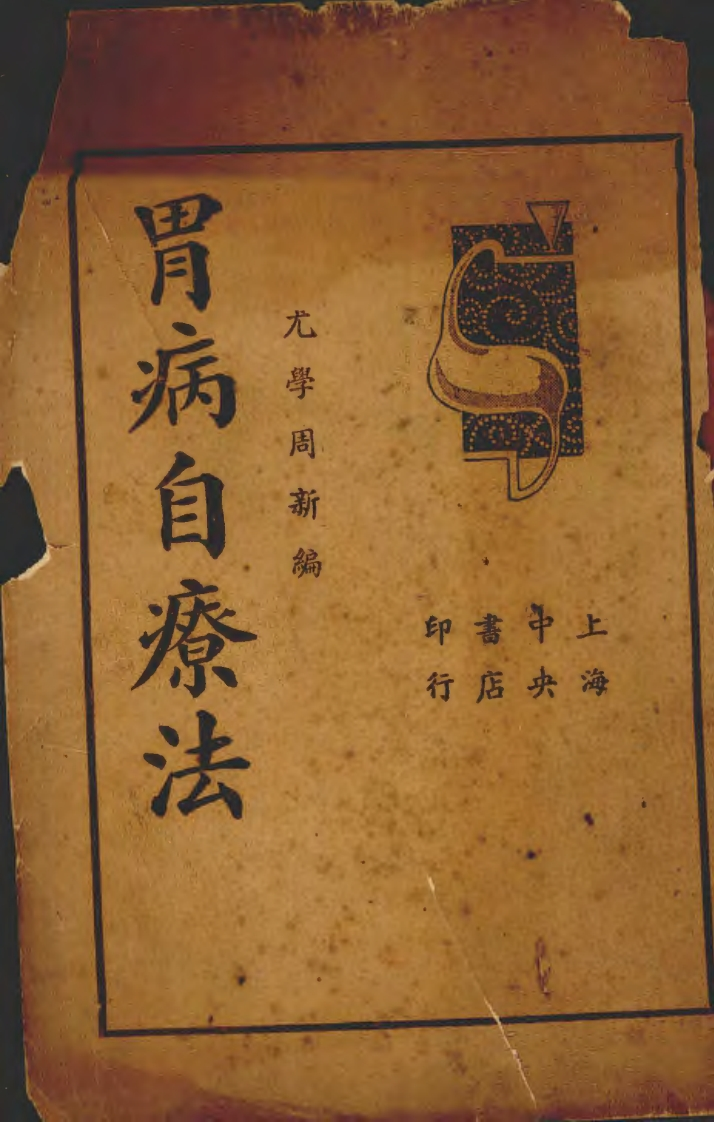 胃病自療法
尤學周新編
上海
中央
書店
印行